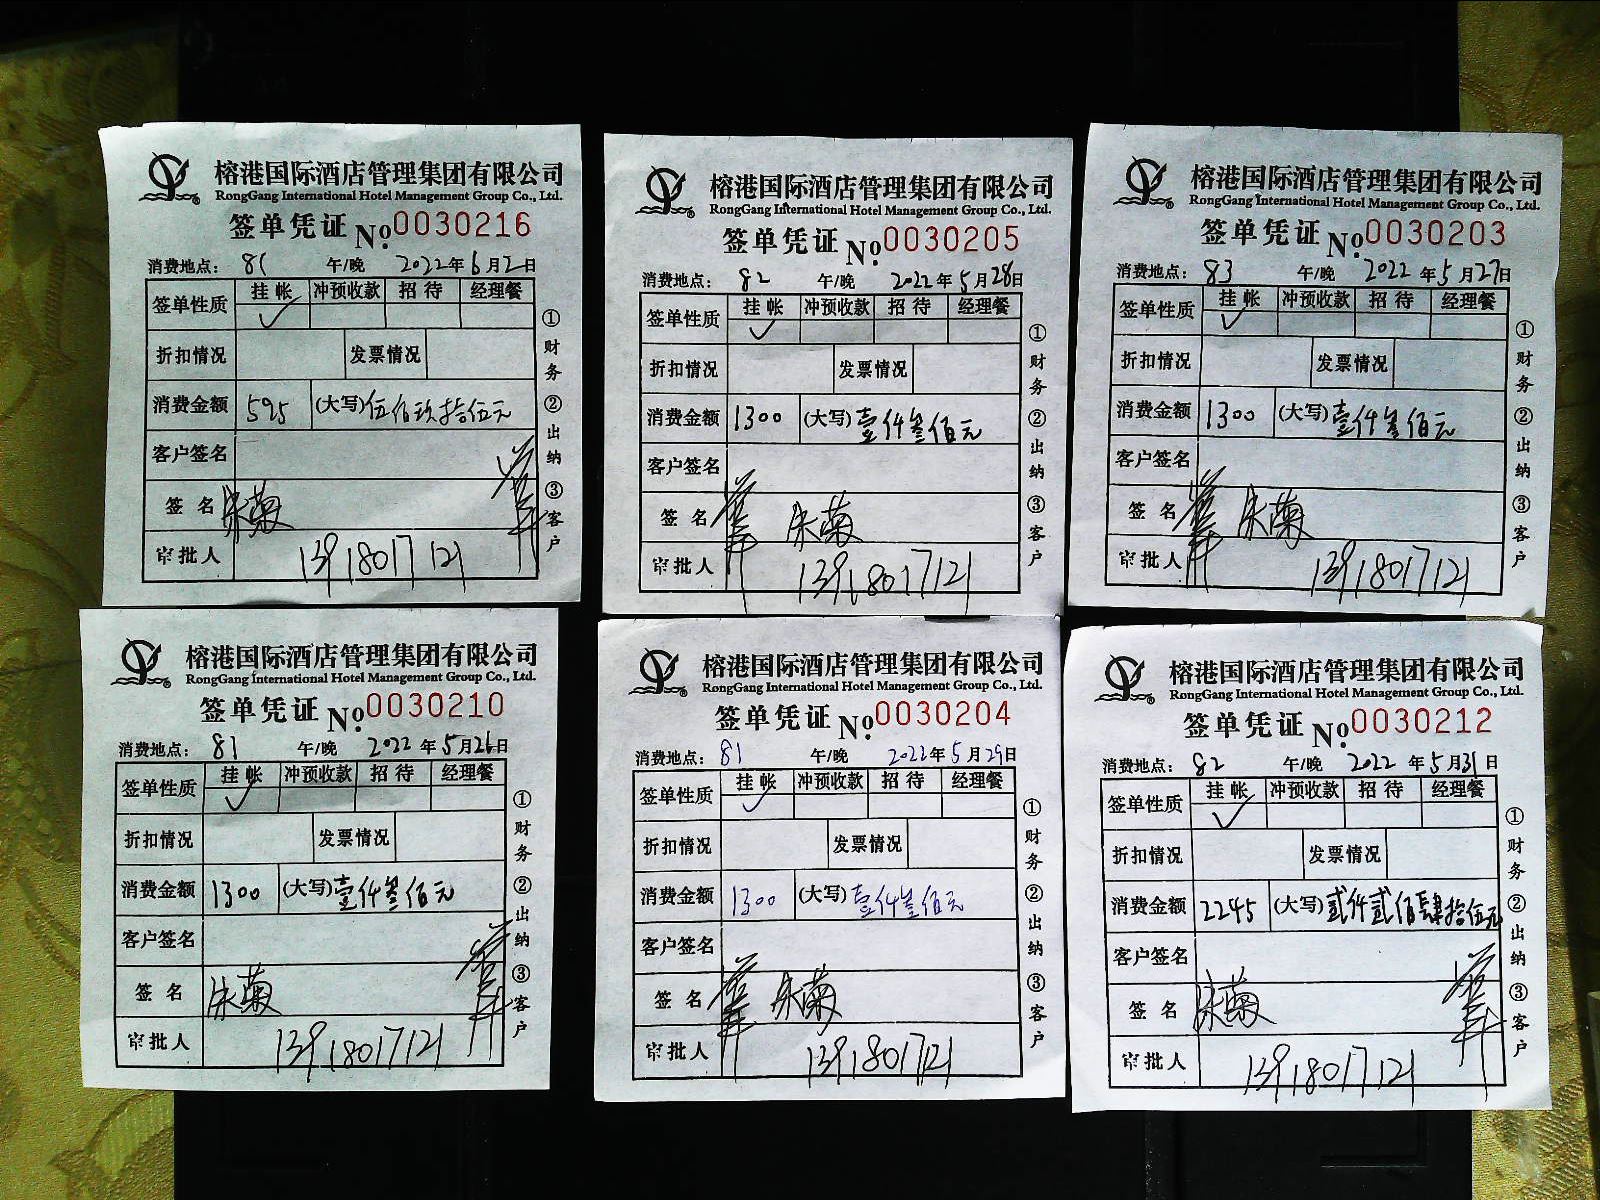 榕港国际酒店管理集团有限公司
RongGang International Hotel Management Group Co., Ltd.
签单凭证 No.0030216
消费地点: 81 午/晚 2022年6月2日
签单性质 挂帐 冲预收款 招待 经理餐
✓
折扣情况 发票情况
消费金额 595 (大写)伍佰玖拾伍元
客户签名
签名 朱菊
审批人 13918017121
①财务 ②出纳 ③客户
榕港国际酒店管理集团有限公司
RongGang International Hotel Management Group Co., Ltd.
签单凭证 No.0030205
消费地点: 82 午/晚 2022年5月28日
签单性质 挂帐 冲预收款 招待 经理餐
✓
折扣情况 发票情况
消费金额 1300 (大写)壹仟叁佰元
客户签名
签名 朱菊
审批人 13918017121
①财务 ②出纳 ③客户
榕港国际酒店管理集团有限公司
RongGang International Hotel Management Group Co., Ltd.
签单凭证 No.0030203
消费地点: 83 午/晚 2022年5月27日
签单性质 挂帐 冲预收款 招待 经理餐
✓
折扣情况 发票情况
消费金额 1300 (大写)壹仟叁佰元
客户签名
签名 朱菊
审批人 13918017121
①财务 ②出纳 ③客户
榕港国际酒店管理集团有限公司
RongGang International Hotel Management Group Co., Ltd.
签单凭证 No.0030210
消费地点: 81 午/晚 2022年5月26日
签单性质 挂帐 冲预收款 招待 经理餐
✓
折扣情况 发票情况
消费金额 1300 (大写)壹仟叁佰元
客户签名
签名 朱菊
审批人 13918017121
①财务 ②出纳 ③客户
榕港国际酒店管理集团有限公司
RongGang International Hotel Management Group Co., Ltd.
签单凭证 No.0030204
消费地点: 81 午/晚 2022年5月29日
签单性质 挂帐 冲预收款 招待 经理餐
✓
折扣情况 发票情况
消费金额 1300 (大写)壹仟叁佰元
客户签名
签名 朱菊
审批人 13918017121
①财务 ②出纳 ③客户
榕港国际酒店管理集团有限公司
RongGang International Hotel Management Group Co., Ltd.
签单凭证 No.0030212
消费地点: 82 午/晚 2022年5月31日
签单性质 挂帐 冲预收款 招待 经理餐
✓
折扣情况 发票情况
消费金额 2245 (大写)贰仟贰佰肆拾伍元
客户签名
签名 朱菊
审批人 13918017121
①财务 ②出纳 ③客户